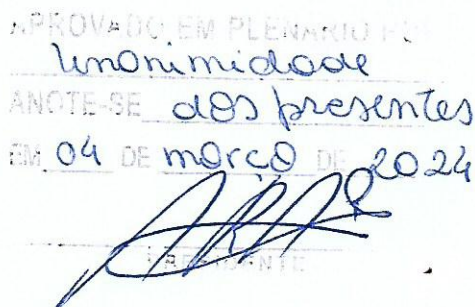 APROVADO EM PLENÁRIO POR
Unanimidade
ANOTE-SE dos presentes
EM 04 DE março DE 2024
PRESIDENTE